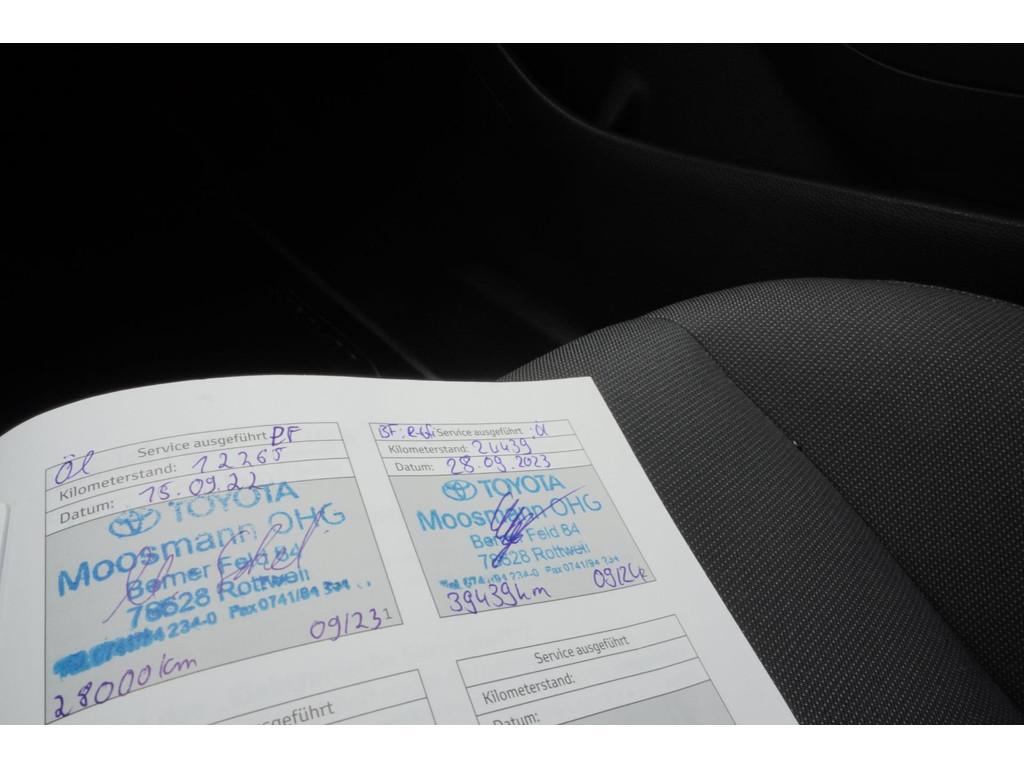 Service ausgeführt BF
Öl
Kilometerstand: 12265
Datum: 15.09.22
TOYOTA
Moosmann OHG
Berner Feld 84
78628 Rottweil
234-0 Fax 0741/94
09/23 1
28000 km
BF: Service ausgeführt Öl
Kilometerstand: 24439
Datum: 28.09.2023
TOYOTA
Moosmann OHG
Berner Feld 84
78628 Rottweil
234-0 Fax 0741/94 234
39439 km 09/24
Service ausgeführt
Kilometerstand:
Datum: